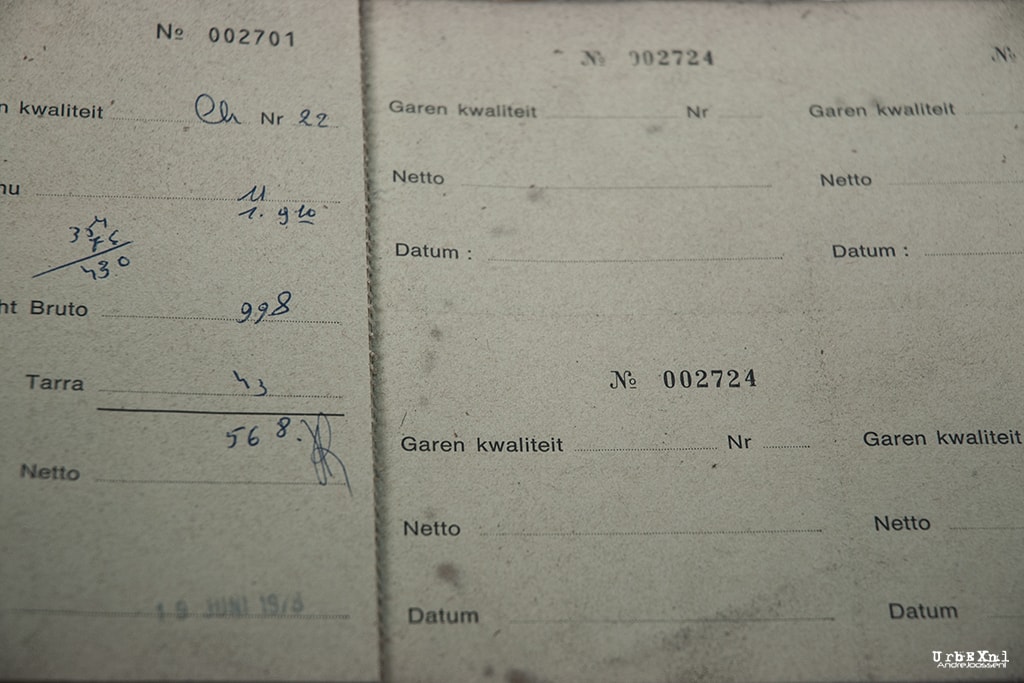 Nº 002701
n kwaliteit Nr 22
nu 11
1.910
430
ht Bruto 998
Tarra 43
568.
Netto
19 JUNI 197
Nº 002724
Garen kwaliteit Nr
Netto
Datum :
Nº
Garen kwaliteit
Netto
Datum :
Nº 002724
Garen kwaliteit Nr
Netto
Datum
Garen kwaliteit
Netto
Datum
UrbEXnl
AndreJoosse.nl